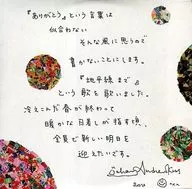 『ありがとう』という言葉は
似合わない
そんな風に思うので
書かないことにします。
『地平線まで』
という歌を歌いました。
冷えこんだ春が終わって
暖かな日暮しが指す頃、
全員で新しい明日を
迎えたいです。